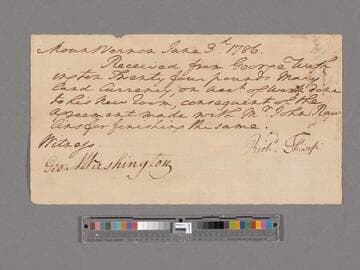 Mount Vernon June 3d 1786.
Received from George Wash
ington Twenty four pounds Mary
land Currency, on acct of work done
to his New Room, consequent of the
agreement made with Mr John Raw
lins for finishing the same.
Witness
Richd Tharp
Geo. A Washington